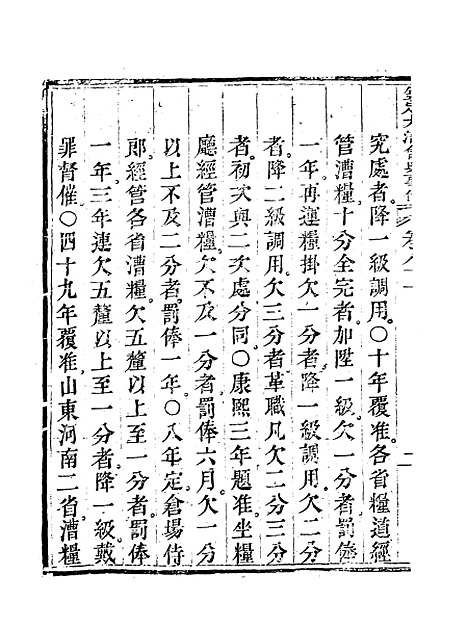 欽定大清會典事例 卷八十一 二
究處者降一級調用○十年覆准各省糧道經
管漕糧十分全完者加陞一級欠一分者罰俸
一年再運糧掛欠一分者降一級調用欠二分
者降二級調用欠三分者革職凡欠二分三分
者初次與二次處分同○康熙三年題准坐糧
廳經管漕糧欠不及一分者罰俸六月欠一分
以上不及二分者罰俸一年○八年定倉場侍
郎經管各省漕糧欠五釐以上至一分者罰俸
一年三年連欠五釐以上至一分者降一級戴
罪督催○四十九年覆准山東河南二省漕糧